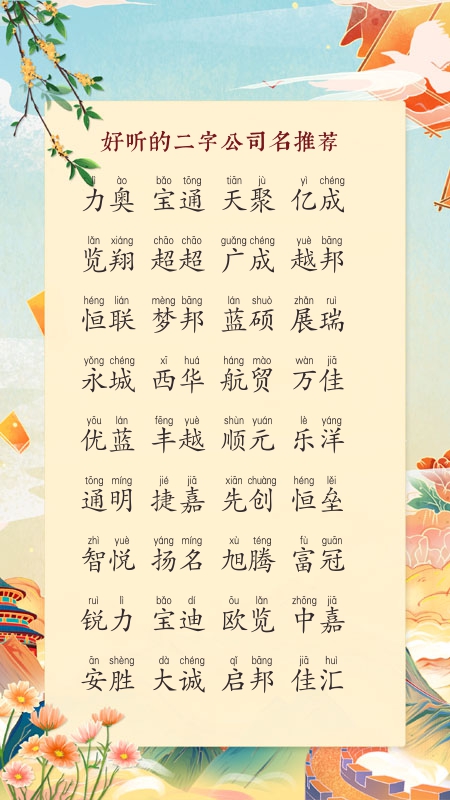 好听的二字公司名推荐
lì ào bǎo tōng tiān jù yì chéng
力奥 宝通 天聚 亿成
lǎn xiáng chāo chāo guǎng chéng yuè bāng
览翔 超超 广成 越邦
héng lián mèng bāng lán shuò zhǎn ruì
恒联 梦邦 蓝硕 展瑞
yǒng chéng xī huá háng mào wàn jiā
永城 西华 航贸 万佳
yōu lán fēng yuè shùn yuán lè yáng
优蓝 丰越 顺元 乐洋
tōng míng jié jiā xiān chuàng héng lěi
通明 捷嘉 先创 恒垒
zhì yuè yáng míng xù téng fù guān
智悦 扬名 旭腾 富冠
ruì lì bǎo dí ōu lǎn zhōng jiā
锐力 宝迪 欧览 中嘉
ān shèng dà chéng qǐ bāng jiā huì
安胜 大诚 启邦 佳汇